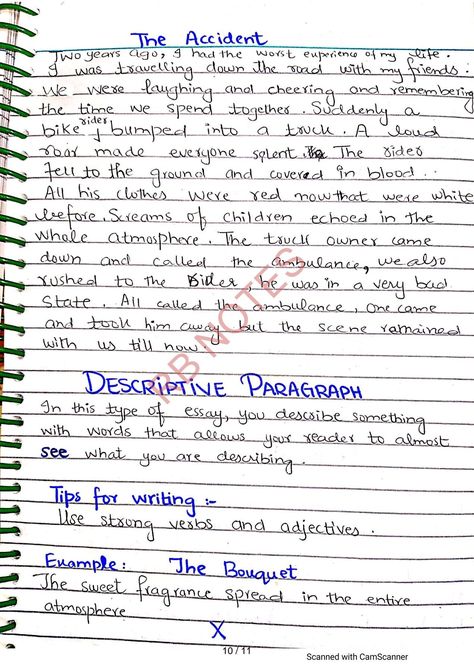 The Accident
Two years ago, I had the worst experience of my life.
I was travelling down the road with my friends.
We were laughing and cheering and remembering
the time we spend together. Suddenly a
bike rider bumped into a truck. A loud
roar made everyone splent. The rider
fell to the ground and covered in blood..
All his clothes were red now that were white
before. Screams of children echoed in the
whole atmosphere. The truck owner came
down and called the ambulance, we also
rushed to the Rider, he was in a very bad
state. All called the ambulance, one came
and took him away but the scene remained
with us till now.
RB NOTES
DESCRIPTIVE PARAGRAPH
In this type of essay, you describe something
with words that allows your reader to almost
see what you are describing.
Tips for writing :-
Use strong verbs and adjectives.
Example: The Bouquet
The sweet fragrance spread in the entire
atmosphere
X
10 / 11
Scanned with CamScanner